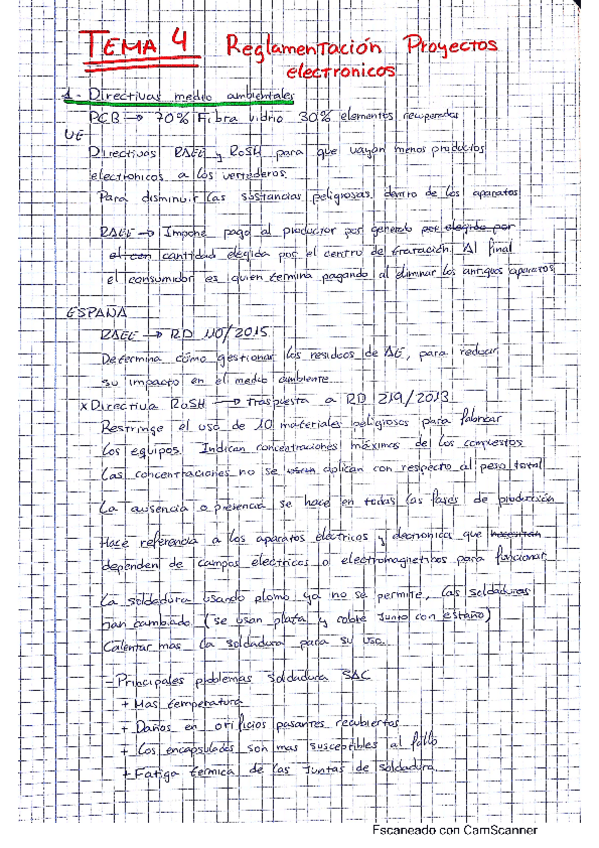 TEMA 4 Reglamentación Proyectos
electronicos
1- Directivas medio ambientales
PCB → 70% Fibra vidrio 30% elementos recuperados
UE
Directivas RAEE y RoSH para que vayan menos productos
electronicos a los vertederos.
Para disminuir las sustancias peligrosas dentro de los aparatos
RAEE → Impone pago al productor por generarlo por elegida por
el con cantidad elegida por el centro de Al final
el consumidor es quien termina pagando al eliminar los antiguos aparatos
ESPAÑA
RAEE → RD 110/2015
Determina cómo gestionar los residuos de AE, para reducir
su impacto en el medio ambiente
x Directiva RoSH → Traspuesta a RD 219/2013
Restringe el uso de 10 materiales peligrosos para fabricar
los equipos. Indican concentraciones máximas de los compuestos
Las concentraciones no se usan aplican con respecto al peso total
La ausencia o presencia se hace en todas las fases de producción
Hace referencia a los aparatos eléctricos y que necesitan
dependen de campos electricos o electromagneticos para funcionar
La soldadura usando plomo ya no se permite, las soldaduras
han cambiado (se usan plata y cobre junto con estaño)
Calentar mas la soldadura para su uso
- Principales problemas soldadura SAC
+ Mas temperatura
+ Daños en orificios pasantes recubiertos
+ Los encapsulados son mas susceptibles al fallo
+ Fatiga termica de las Juntas de soldadura
Escaneado con CamScanner